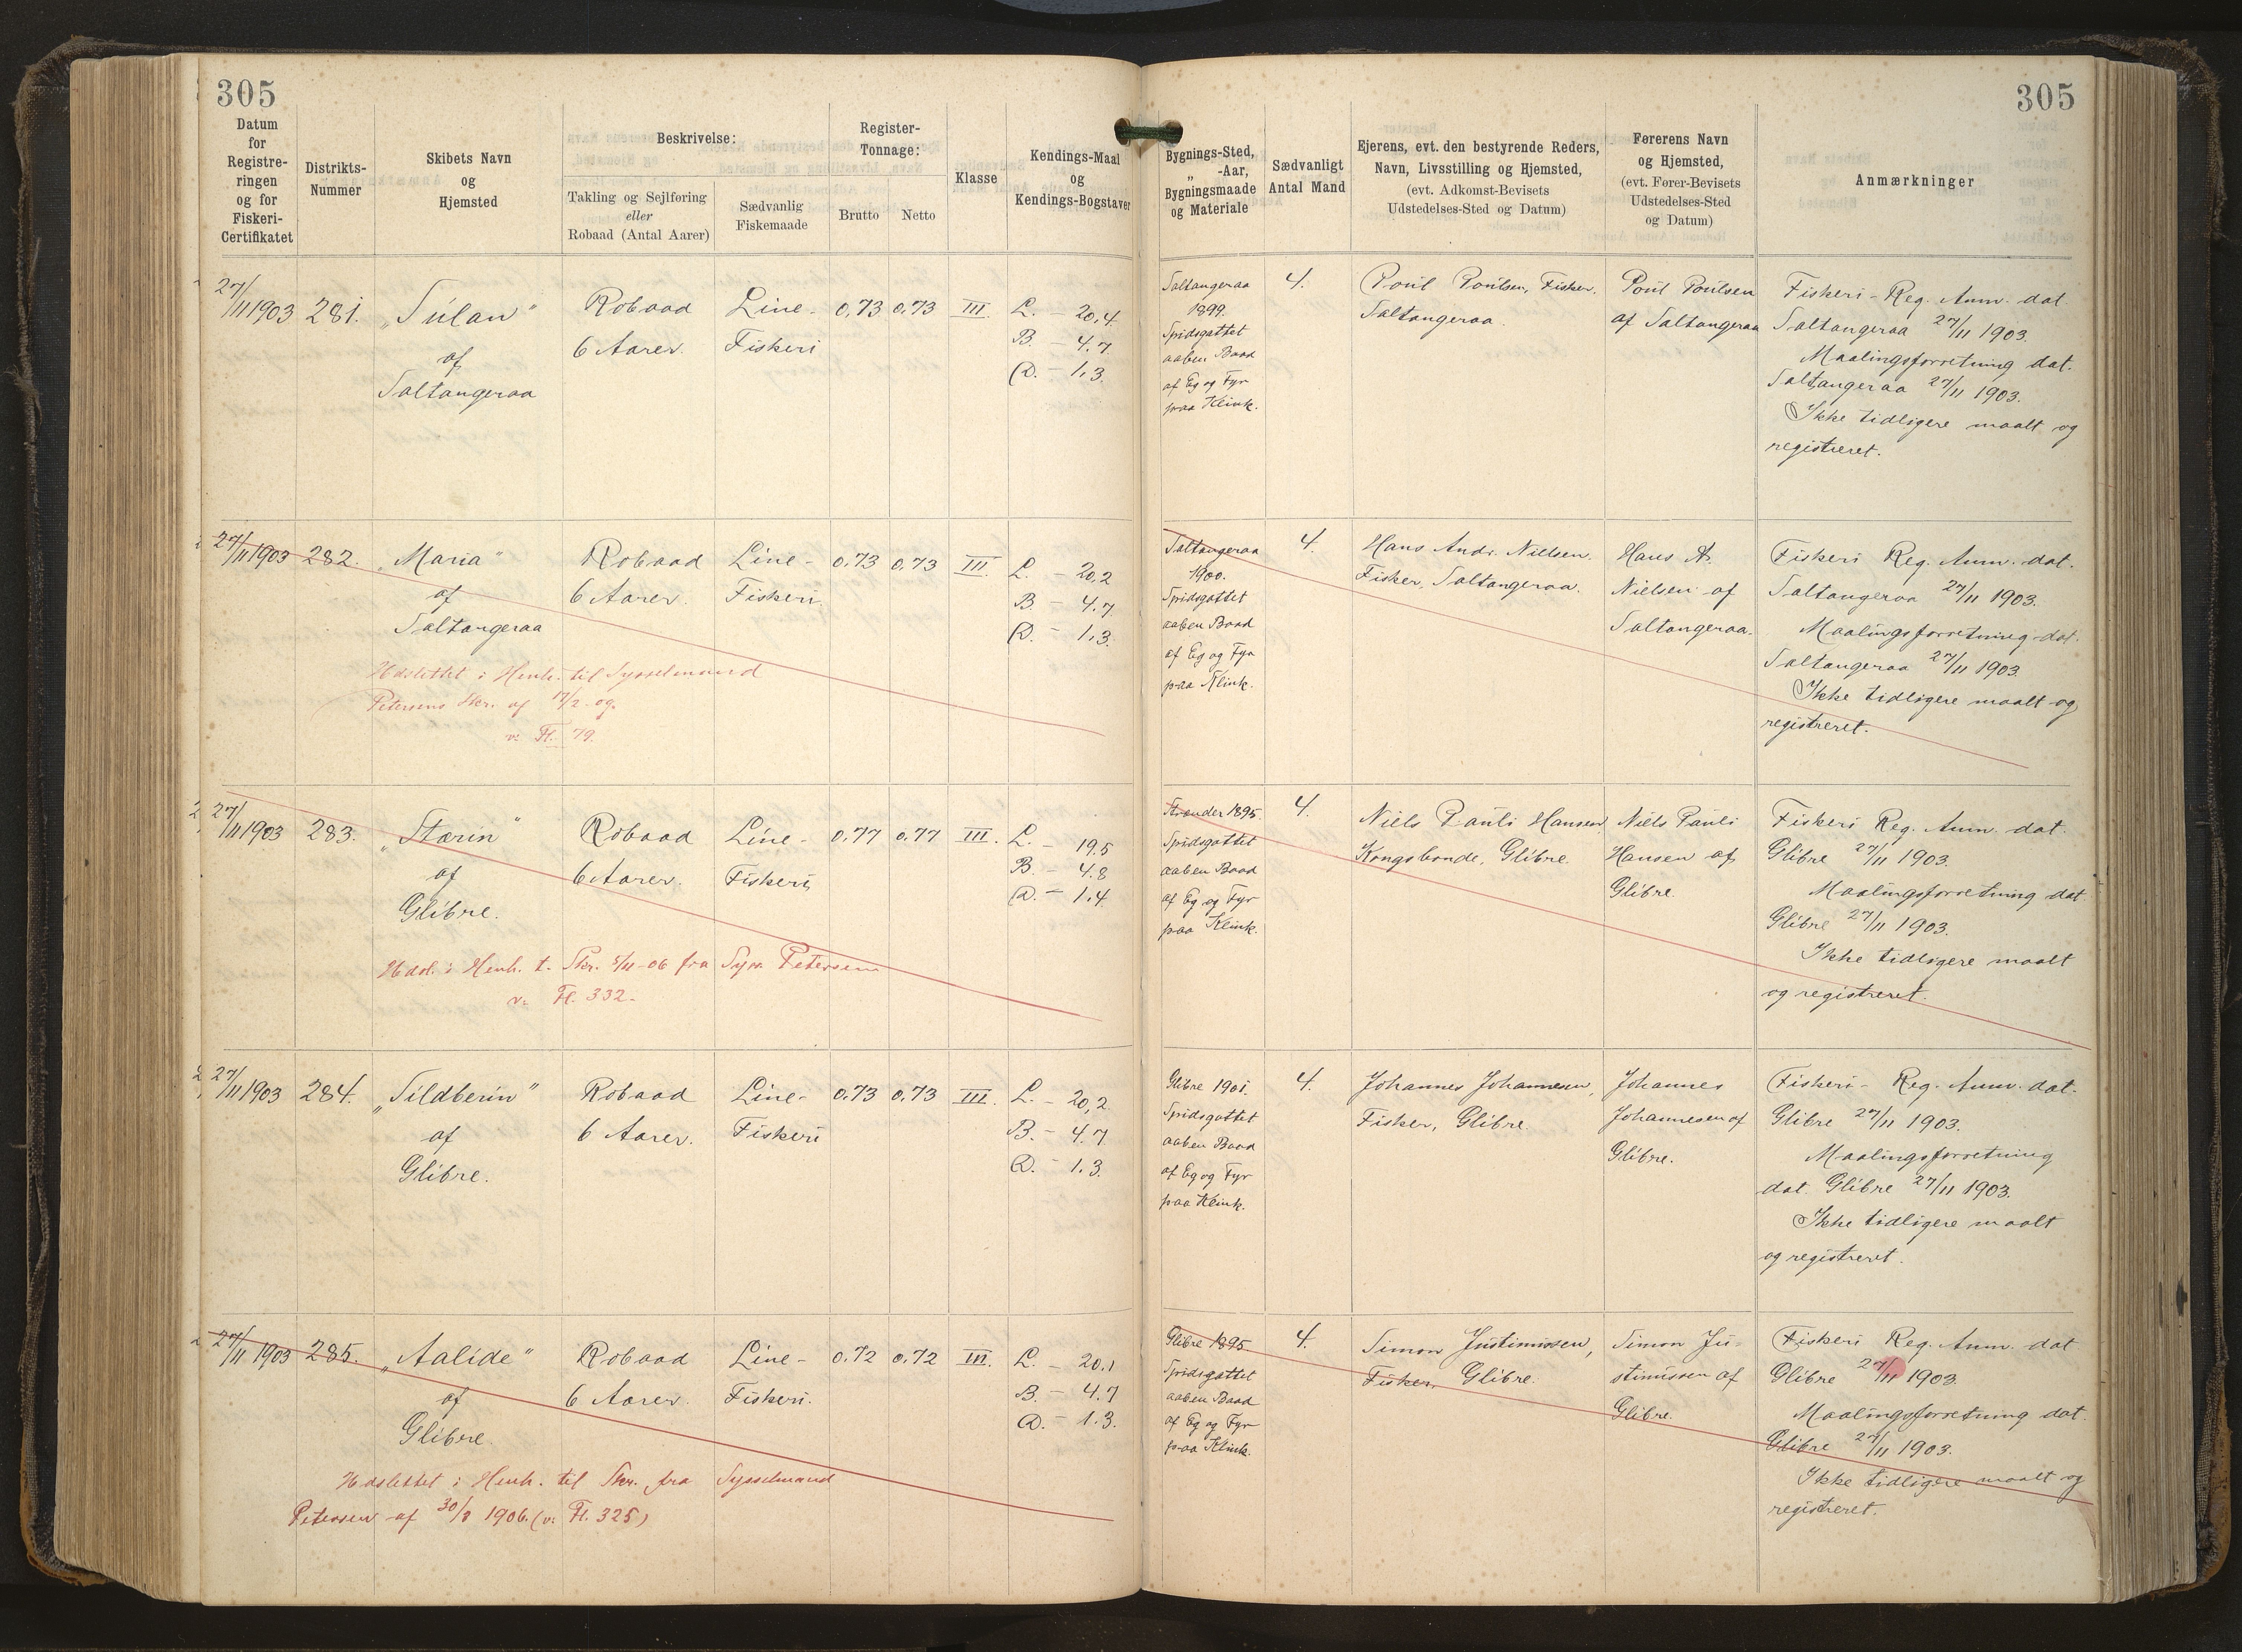 305
305
Datum
for
Registre-
ringen
og for
Fiskeri-
Certifikatet
Distrikts-
Nummer
Skibets Navn
og
Hjemsted
Beskrivelse:
Takling og Sejlføring
eller
Robaad (Antal Aarer)
Sædvanlig
Fiskemaade
Register-
Tonnage:
Brutto
Netto
Klasse
Kendings-Maal
og
Kendings-Bogstaver
Bygnings-Sted,
„ -Aar,
Bygningsmaade
og Materiale
Sædvanligt
Antal Mand
Ejerens, evt. den bestyrende Reders,
Navn, Livsstilling og Hjemsted,
(evt. Adkomst-Bevisets
Udstedelses-Sted og Datum)
Førerens Navn
og Hjemsted,
(evt. Fører-Bevisets
Udstedelses-Sted
og Datum)
Anmærkninger
27/11 1903
281.
„Súlan"
af
Saltangeraa
Robaad
6 Aarer.
Line-
Fiskeri
0,73
0,73
III.
L. - 20,4
B. - 4.7
D. - 1,3.
Saltangeraa
1899.
Spidsgattet
aaben Baad
af Eg og Fyr
paa Klink.
4.
Poul Poulsen, Fisker.
Saltangeraa.
Poul Poulsen
af Saltangeraa
Fiskeri-Reg. Anm. dat.
Saltangeraa 27/11 1903.
Maalingsforretning dat.
Saltangeraa 27/11 1903.
Ikke tidligere maalt og
registreret.
27/11 1903
282.
„Maria"
af
Saltangeraa
Robaad
6 Aarer.
Line-
Fiskeri
0.73
0.73
III.
L. - 20,2
B. - 4.7
D. - 1,3
Udslettet i Henh. til Sysselmand
Petersens Skr. af 17/2 og.
v: Fl. 79.
Saltangeraa
1900.
Spidsgattet
aaben Baad
af Eg og Fyr
paa Klink.
4.
Hans Andr. Nielsen.
Fisker, Saltangeraa.
Hans A.
Nielsen af
Saltangeraa.
Fiskeri Reg. Anm. dat.
Saltangeraa 27/11 1903.
Maalingsforretning dat.
Saltangeraa 27/11 1903.
Ikke tidligere maalt og
registreret.
27/11 1903
283.
„Stærin"
af
Glibre.
Robaad
6 Aarer.
Line-
Fiskeri
0,77
0,77
III.
L. - 19,5
B. - 4.8
D. - 1.4
Udsl. i Henh. t. Skr. 5/11-06 fra Syss Petersen
v: Fl. 332.
Strender 1895.
Spidsgattet
aaben Baad
af Eg og Fyr
paa Klink.
4.
Niels Pauli Hansen
Kongsbonde, Glibre.
Niels Pauli
Hansen af
Glibre.
Fiskeri Reg. Anm. dat.
Glibre 27/11 1903.
Maalingsforretning dat
Glibre 27/11 1903.
Ikke tidligere maalt
og registreret.
27/11 1903
284.
„Sildberin"
af
Glibre.
Robaad
6 Aarer.
Line-
Fiskeri
0.73
0,73
III.
L. - 20,2
B. - 4.7
D. - 1.3.
Glibre 1901.
Spidsgattet
aaben Baad
af Eg og Fyr
paa Klink.
4.
Johannes Johannesen,
Fisker, Glibre.
Johannes
Johannesen af
Glibre.
Fiskeri- Reg. Anm. dat.
Glibre 27/11 1903.
Maalingsforretning
dat. Glibre 27/11 1903.
Ikke tidligere maalt
og registreret.
27/11 1903
285.
„Aalide"
af
Glibre.
Robaad
6 Aarer.
Line-
Fiskeri.
0.72
0.72
III.
L. - 20,1
B. - 4.7
D. - 1.3.
Udslettet i Henh. til Skr. fra Sysselmand
Petersen af 30/8 1906. (v: Fl. 325)
Glibre 1895
Spidsgattet
aaben Baad
af Eg og Fyr
paa Klink.
4.
Simon Justinussen,
Fisker, Glibre.
Simon Ju-
stinussen af
Glibre.
Fiskeri Reg. Anm. dat
Glibre 27/11 1903.
Maalingsforretning dat.
Glibre 27/11 1903.
Ikke tidligere maalt og
registreret.